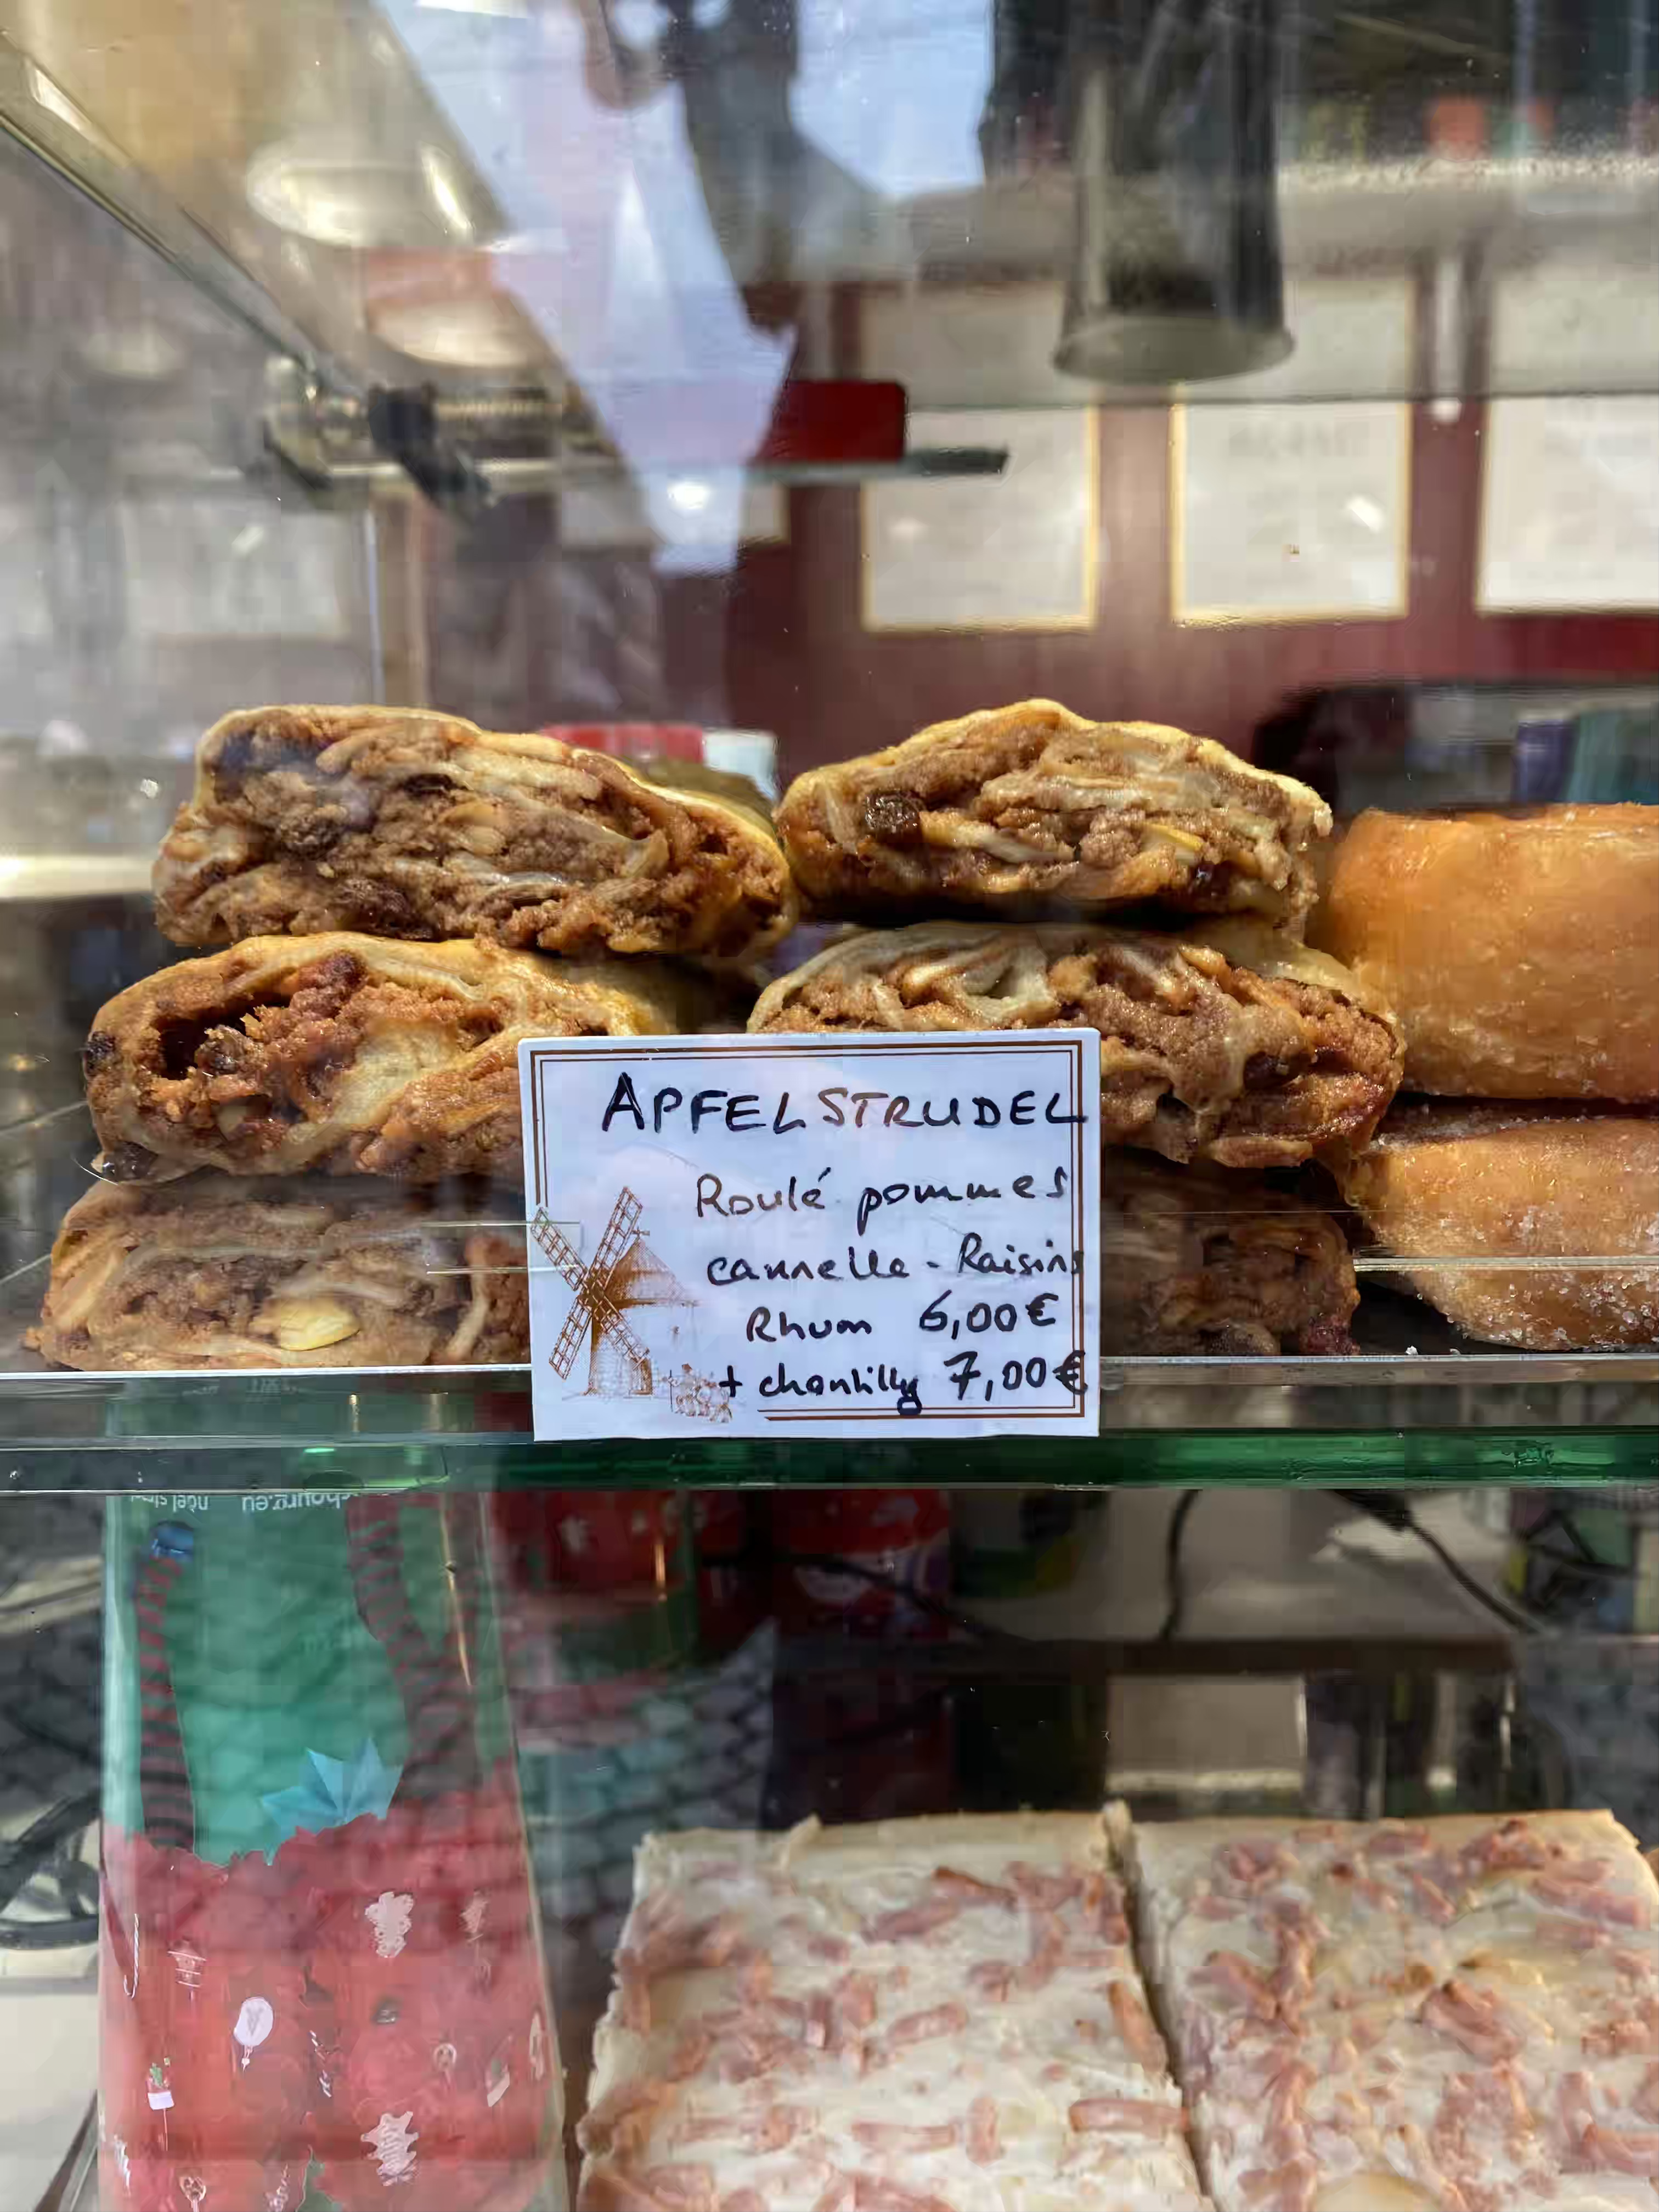 APFELSTRUDEL
Roulé pommes
cannelle - Raisins
Rhum 6,00€
+ chantilly 7,00€